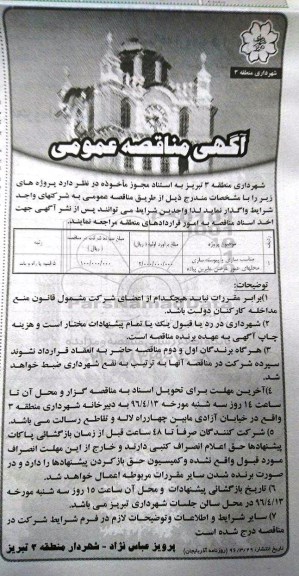 شهرداری منطقه ۳
آگهی مناقصه عمومی
شهرداری منطقه ۳ تبریز به استناد مجوز مأخوذه در نظر دارد پروژه های
زیر را با مشخصات مندرج ذیل از طریق مناقصه عمومی به شرکتهای واجد
شرایط واگذار نماید لذا واجدین شرایط می توانند پس از نشر آگهی جهت
اخذ اسناد مناقصه به امور قراردادهای منطقه مراجعه نمایند.
موضوع پروژه
مبلغ برآورد اولیه (ریال)
سپرده شرکت در مناقصه (ریال)
رتبه
۱
مناسب سازی و پیوسته سازی
محلهای عبور
معابرین پیاده
۲/۰۰۰/۰۰۰/۰۰۰
۱۰۰/۰۰۰/۰۰۰
۵ ابنیه یا راه و باند
توضیحات:
۱)برابر مقررات نباید هیچکدام از اعضای شرکت مشمول قانون منع
مداخله کارکنان دولت باشد.
۲) شهرداری در رد یا قبول یک یا تمام پیشنهادات مختار است و هزینه
چاپ آگهی به عهده برنده مناقصه است.
۳) هر گاه برندگان اول و دوم مناقصه حاضر به انعقاد قرارداد نشوند
سپرده شرکت در مناقصه آنها به ترتیب به نفع شهرداری ضبط خواهد
شد.
۴)آخرین مهلت برای تحویل اسناد به مناقصه گزار و محل آن تا
ساعت ۱۴ روز سه شنبه مورخه ۹۶/۴/۱۳ به دبیرخانه شهرداری منطقه ۳
واقع در خیابان آزادی مابین چهارراه لاله و تقاطع رسالت می باشد.
۵) شرکت کنندگان صرفاً تا ۴۸ ساعت قبل از زمان بازگشائی پاکات
پیشنهادها حق اعلام انصراف کتبی دارند و خارج از این مهلت انصراف
مورد قبول واقع نشده و کمیسیون حق باز کردن پیشنهادها را دارد و در
صورت برنده شدن سایر مقررات مربوطه اعمال خواهد شد.
۶) تاریخ بازگشائی پیشنهادات و محل آن ساعت ۱۵ روز سه شنبه مورخه
۹۶/۴/۱۳ در محل سالن جلسات شهرداری تبریز می باشد.
۷) سایر شرایط و اطلاعات وتوضیحات لازم در فرم شرایط شرکت در
مناقصه درج شده است
پرویز عباس نژاد - شهردار منطقه ۳ تبریز
تاریخ انتشار: ۹۶/۳/۲۹ (روزنامه آذربایجان)